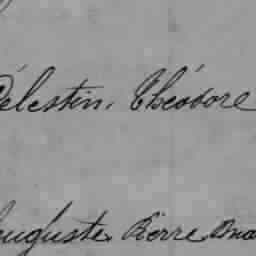 Célestin, Théodore
Auguste Pierre